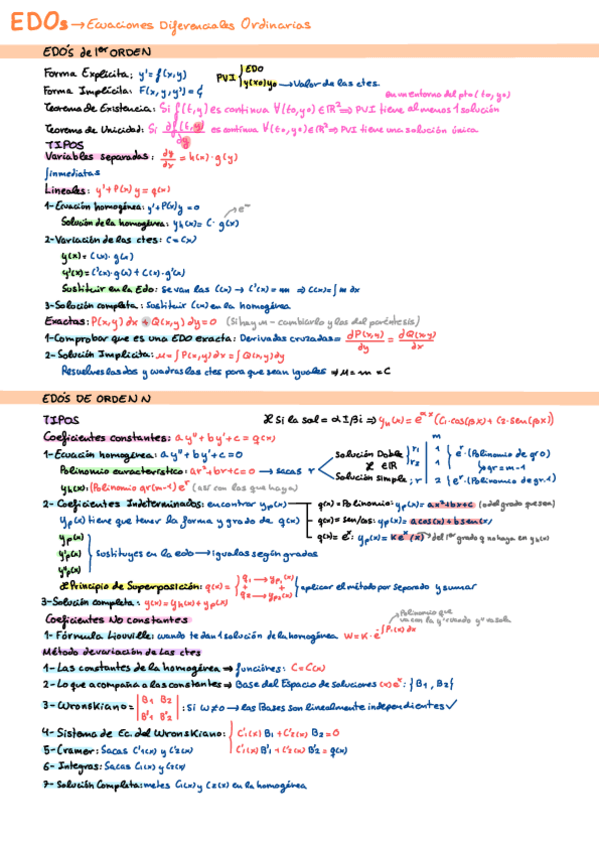 EDOs → Ecuaciones Diferenciales Ordinarias
EDO's de 1er ORDEN
Forma Explícita: y' = f(x,y)
PVI { EDO
y(x0)y0 → Valor de las ctes
Forma Implícita: F(x,y,y') = 
en un entorno del pto (to,yo)
Teorema de Existencia: Si f(t,y) es continua ∀(to,yo) ∈ ℝ² ⇒ PVI tiene al menos 1 solución
Teorema de Unicidad: Si ∂f(t,y)/∂y es continua ∀(to,yo) ∈ ℝ² ⇒ PVI tiene una solución única
TIPOS
Variables separadas: dy/dx = h(x)·g(y)
∫inmediatas
Lineales: y'+P(x)y = q(x)
1-Ecuación homogénea: y'+P(x)y = 0
Solución de la homogénea: yh(x) = C·g(x)
2-Variación de las ctes: C = C(x)
y(x) = C(x)·g(x)
y'(x) = C'(x)·g(x) + C(x)·g'(x)
Sustituir en la Edo: se van las C(x) → C'(x) = m ⇒ C(x) = ∫m dx
3-Solución completa: Sustituir C(x) en la homogénea
Exactas: P(x,y)dx + Q(x,y)dy = 0 (Si hay - cambiarlo y los del paréntesis)
1-Comprobar que es una EDO exacta: Derivadas cruzadas = dP(x,y)/dy = dQ(x,y)/dx
2-Solución Implícita: μ = ∫P(x,y)dx = ∫Q(x,y)dy
Resuelves las dos y cuadras las ctes para que sean iguales ⇒ μ = m = C
EDO'S DE ORDEN N
TIPOS
Si la sol = α ± βi ⇒ yh(x) = e^αx (C1·cos(βx) + C2·sen(βx))
Coeficientes constantes: ay''+by'+c = q(x)
1-Ecuación homogénea: ay''+by'+c = 0
Polinomio característico: ar²+br+c = 0 → sacas r
Solución Doble } r1
∈ ℝ r2
Solución Simple } r
m
1
1 } e^r·(Polinomio de gr 0)
gr = m-1
2 } e^r·(Polinomio de gr 1)
yh(x): (Polinomio gr(m-1)) e^r (así con los que haya)
2-Coeficientes Indeterminados: encontrar yp(x)
yp(x) tiene que tener la forma y grado de q(x)
q(x) = Polinomio: yp(x) = ax²+bx+c (del grado que sea)
q(x) = sen/cos: yp(x) = a cos(x) + b sen(x)
q(x) = e^x: yp(x) = K e^x (x) → del 1er grado q no haya en yh(x)
yp(x)
y'p(x) } sustituyes en la edo → igualas según grados
y''p(x)
Principio de Superposición: q(x) = { q1 → yp1(x) + q2 → yp2(x) } aplicar el método por separado y sumar
3-Solución completa: y(x) = yh(x) + yp(x)
Coeficientes No constantes
Polinomio que
va con la y' cuando y'' va sola
1-Fórmula Liouville: cuando te dan 1 solución de la homogénea W = K·e^-∫P1(x)dx
Método de variación de las ctes
1-Las constantes de la homogénea → funciones: C = C(x)
2-Lo que acompaña a las constantes → Base del Espacio de soluciones: {B1, B2}
3-Wronskiano = | B1 B2 | : Si W≠0 → las Bases son linealmente independientes ✓
| B'1 B'2 |
4-Sistema de Ec. del Wronskiano: { C'1(x) B1 + C'2(x) B2 = 0
5-Cramer: Sacas C'1(x) y C'2(x) { C'1(x) B'1 + C'2(x) B'2 = q(x)
6-Integras: Sacas C1(x) y C2(x)
7-Solución Completa: metes C1(x) y C2(x) en la homogénea